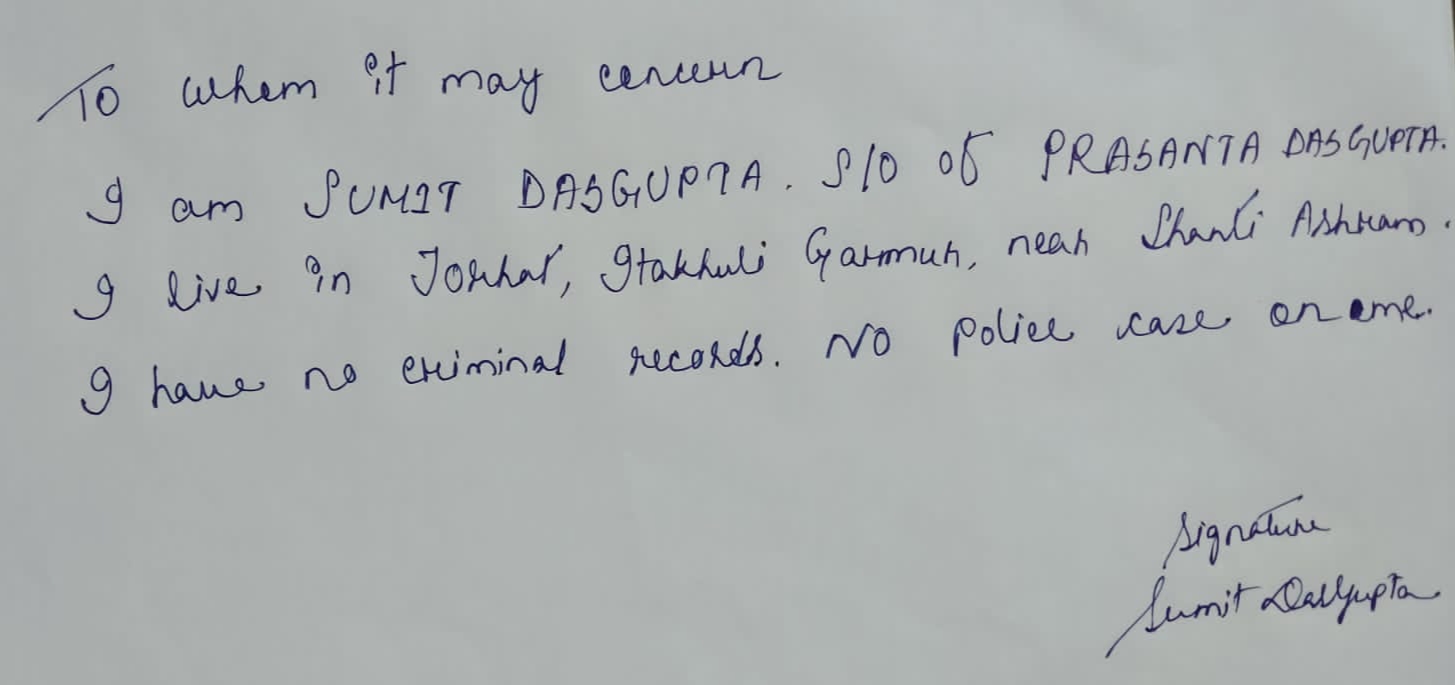 To whom it may concern
I am SUMIT DASGUPTA. S/O of PRASANTA DASGUPTA.
I live in Jorhat, Itakhuli Garmur, near Shanti Ashram.
I have no criminal records. NO police case on me.
Signature
Sumit DasGupta